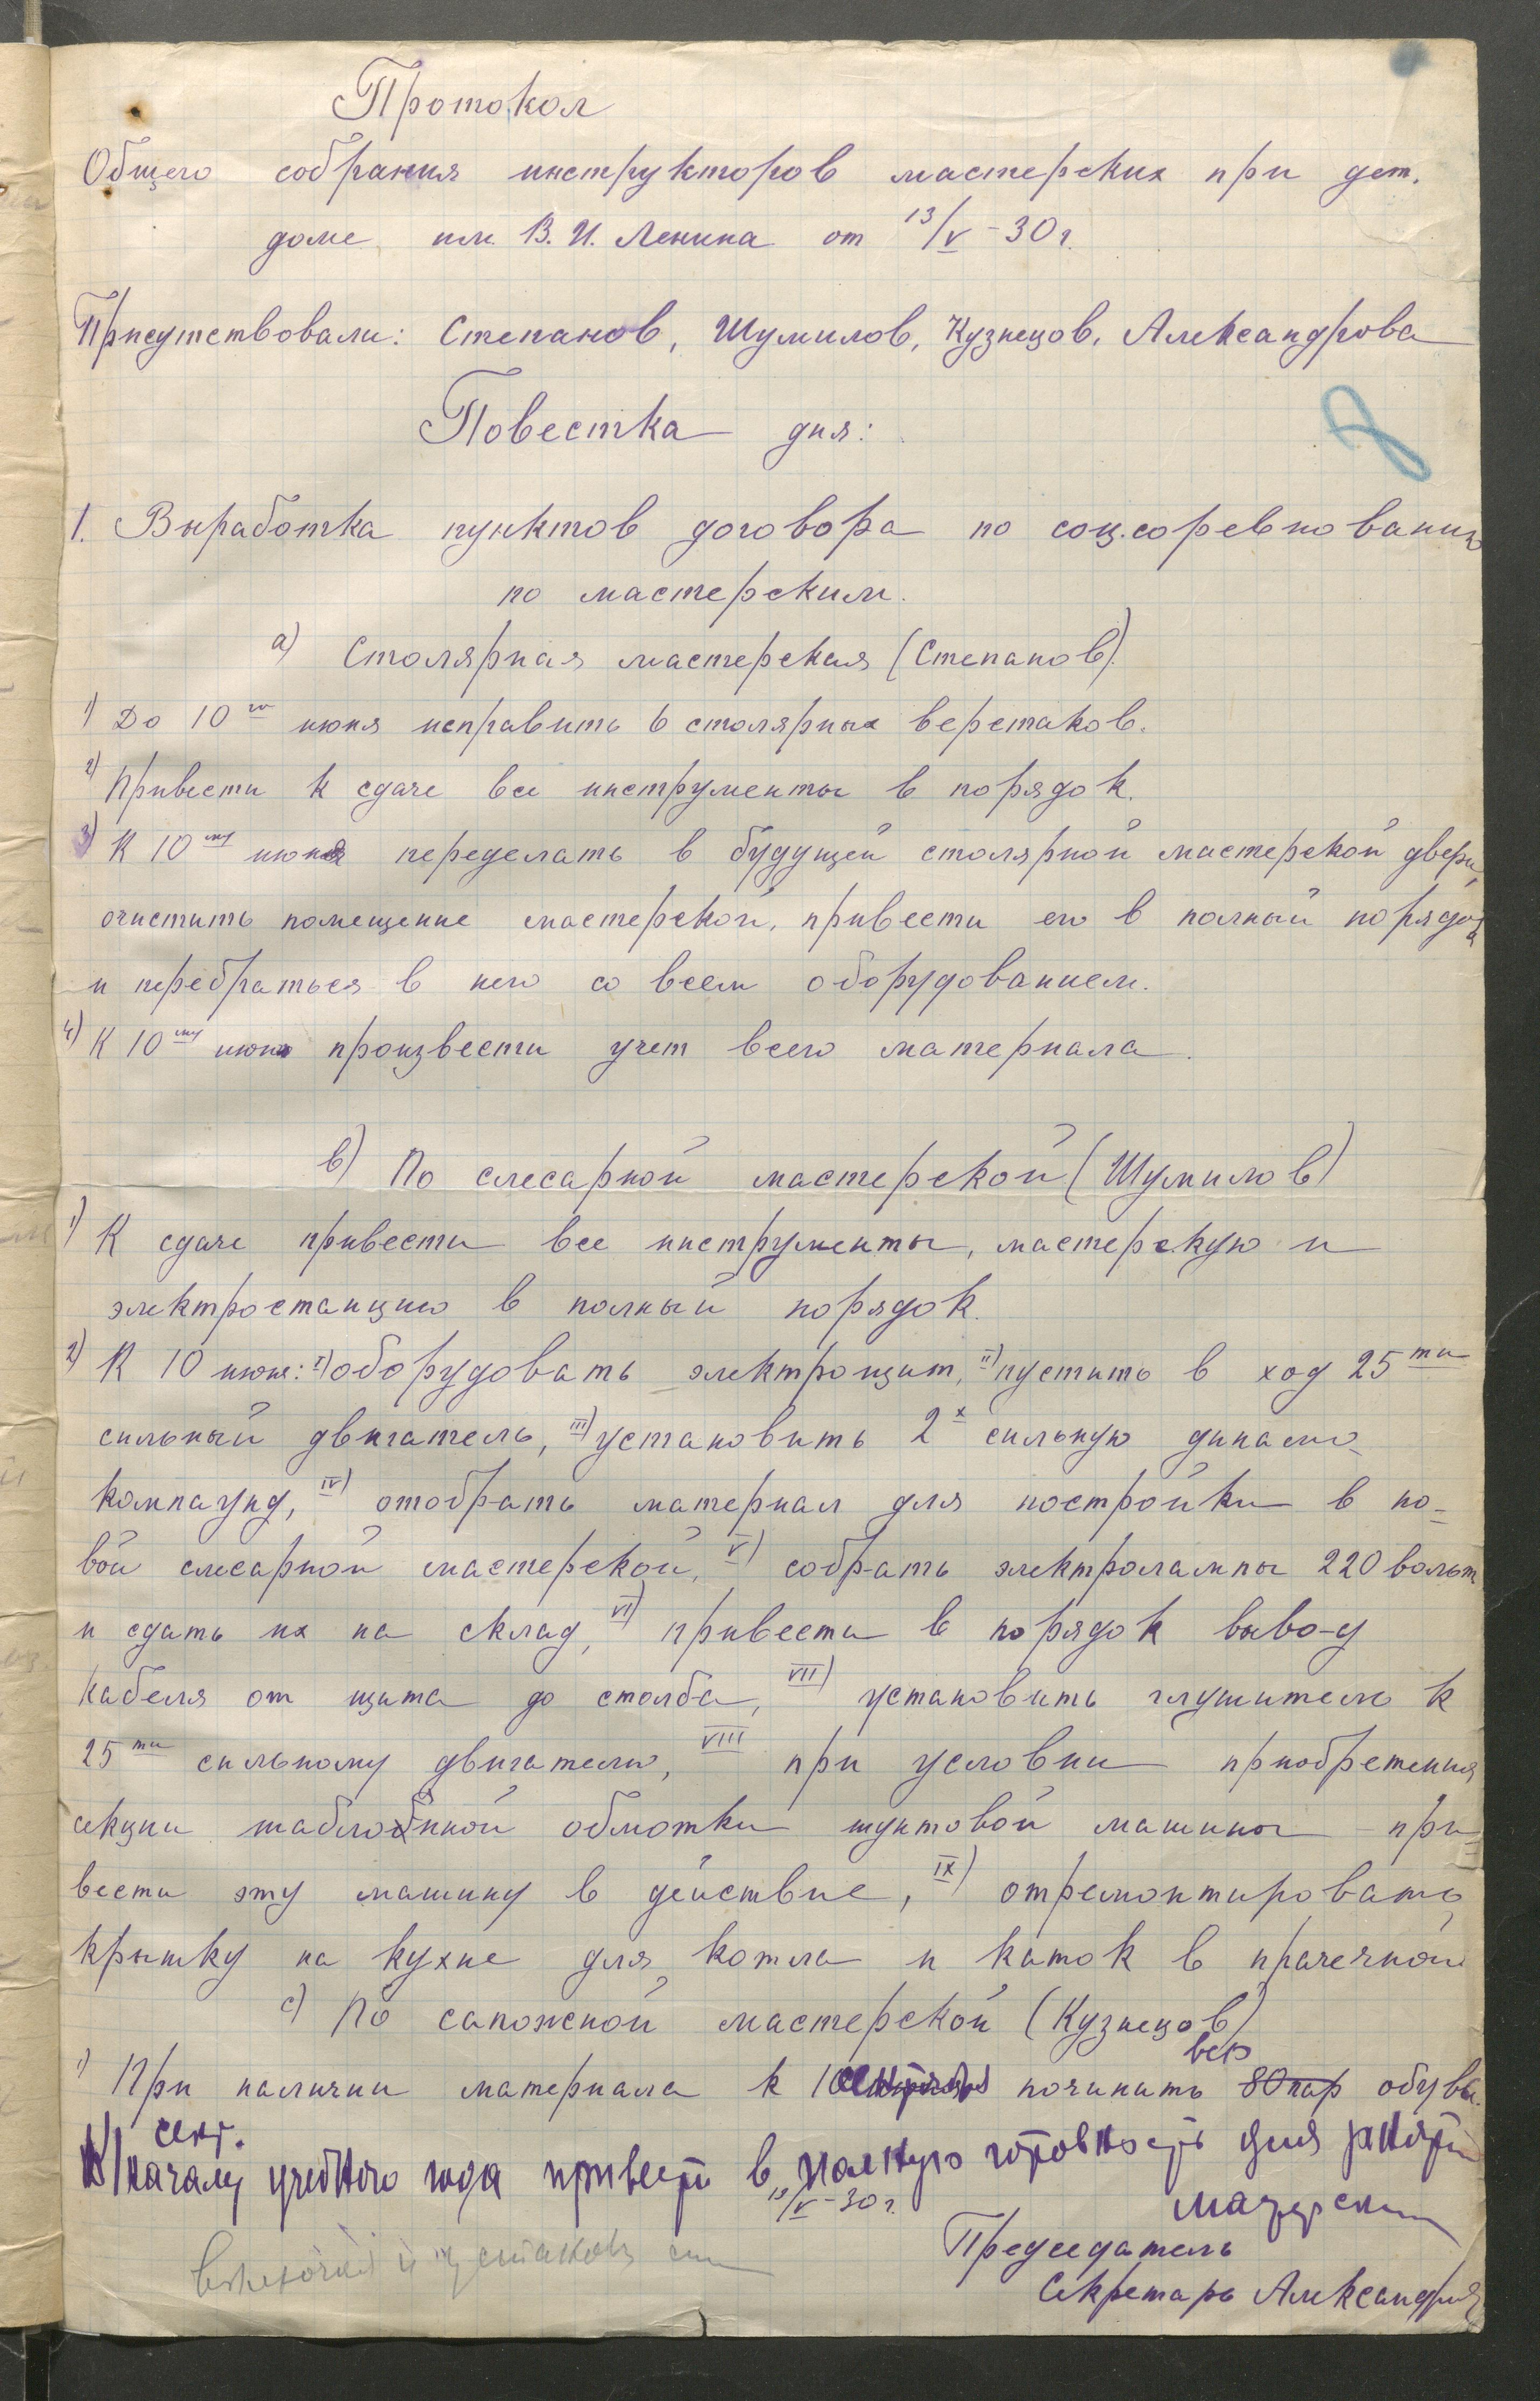 Протокол
Общего собрания инструкторов мастерских при дет.
доме им. В. И. Ленина от 13/V - 30 г.
Присутствовали: Степанов, Шумилов, Кузнецов, Александрова
Повестка дня:
1. Выработка пунктов договора по соц.соревнованию
по мастерским.
а) Столярная мастерская (Степанов).
1) До 10го июня исправить 6 столярных верстаков.
2) Привести к сдаче все инструменты в порядок.
3) К 10му июня переделать в будущей столярной мастерской двери,
очистить помещение мастерской, привести его в полный порядок
и перебраться в него со всем оборудованием.
4) К 10му июня произвести учет всего материала.
в) По слесарной мастерской (Шумилов)
1) К сдаче привести все инструменты, мастерскую и
электростанцию в полный порядок.
2) К 10 июня: I) оборудовать электрощит, II) пустить в ход 25ти
сильный двигатель, III) установить 2х сильную динамо-
компаунд, IV) отобрать материал для постройки в но-
вой слесарной мастерской, V) собрать электролампы 220 вольт
и сдать их на склад, VI) привести в порядок вывод
кабеля от щита до столба, VII) установить глушитель к
25ти сильному двигателю, VIII при условии приобретения
секции шаблонной обмотки шунтовой машины - при-
вести эту машину в действие, IX) отремонтировать
крышку на кухне для котла и каток в прачечной
с) По сапожной мастерской (Кузнецов)
всю
1) При наличии материала к 1 починить 80 пар обуви.
сент.
К/ началу учебного года привести в полную готовность для занятий
13/V - 30 г. мастерские
Председатель
Секретарь Александрова